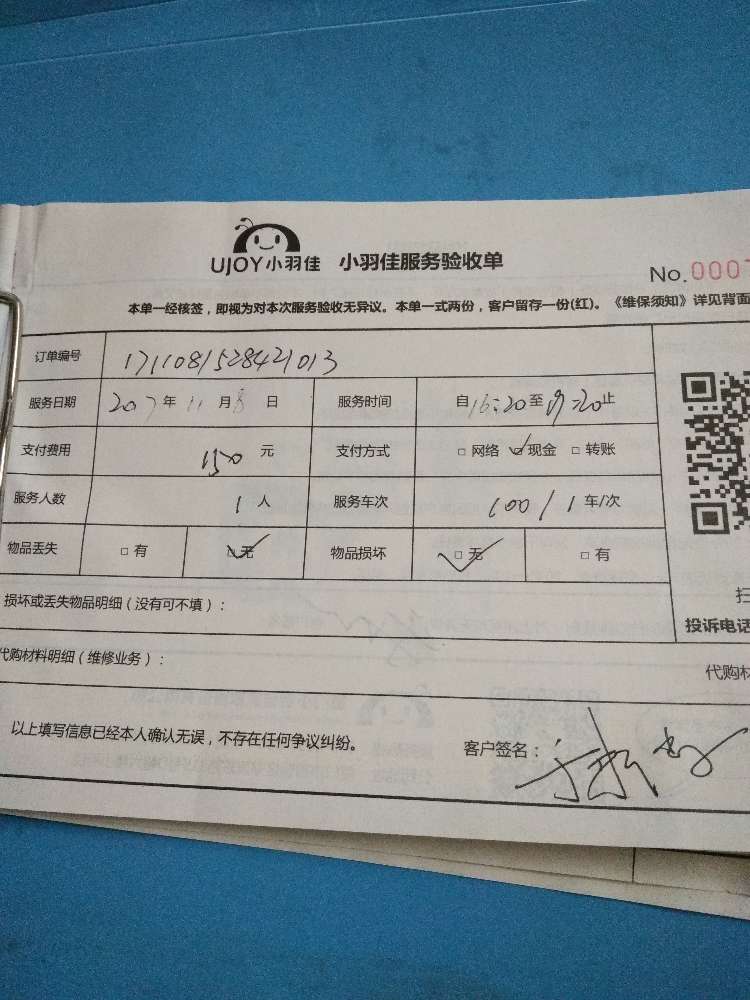 UJOY小羽佳 小羽佳服务验收单
No.000
本单一经核签，即视为对本次服务验收无异议。本单一式两份，客户留存一份(红)。《维保须知》详见背面
订单编号 1711081528421013
服务日期 2017年11月8日 服务时间 自16:20至19:20止
支付费用 150元 支付方式 □网络 ☑现金 □转账
服务人数 1人 服务车次 100/1车/次
物品丢失 □有 ☑无 物品损坏 ☑无 □有
损坏或丢失物品明细（没有可不填）：
扫
投诉电话
代购材料明细（维修业务）：
代购材
以上填写信息已经本人确认无误，不存在任何争议纠纷。 客户签名：